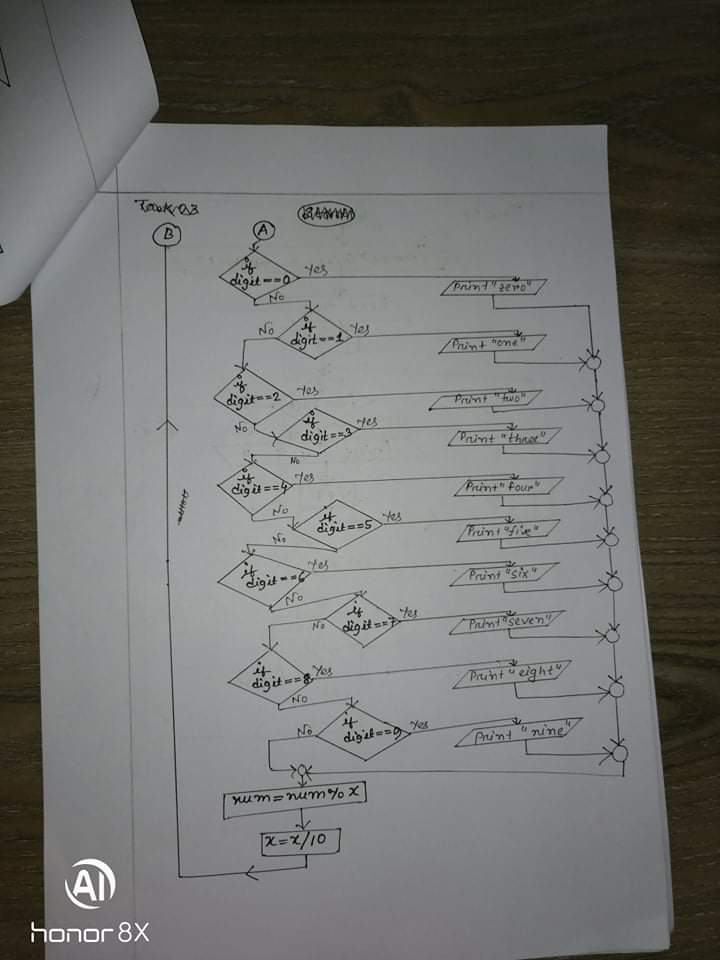 B
A
if
digit==0
Yes
Print "zero"
No
if
digit==1
Yes
No
Print "one"
if
digit==2
Yes
Print "two"
No
if
digit==3
Yes
Print "three"
No
if
digit==4
Yes
Print "four"
No
if
digit==5
Yes
Print "five"
No
if
digit==6
Yes
Print "six"
No
if
digit==7
Yes
No
Print "seven"
if
digit==8
Yes
Print "eight"
No
if
digit==9
Yes
No
Print "nine"
num=num%x
x=x/10
AI
honor 8X